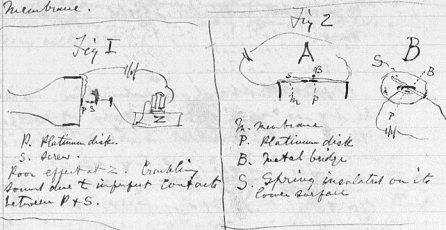 membrane.
Fig I
P S
N
P. Platinum disk.
S. Screw.
Poor effect at 2. Crackling
sound due to imperfect contacts
between P & S.
Fig 2
A
B
S
B
M
P
S
B
P
M. Membrane
P. Platinum disk
B. Metal bridge
S. Spring insulated on its
lower surface